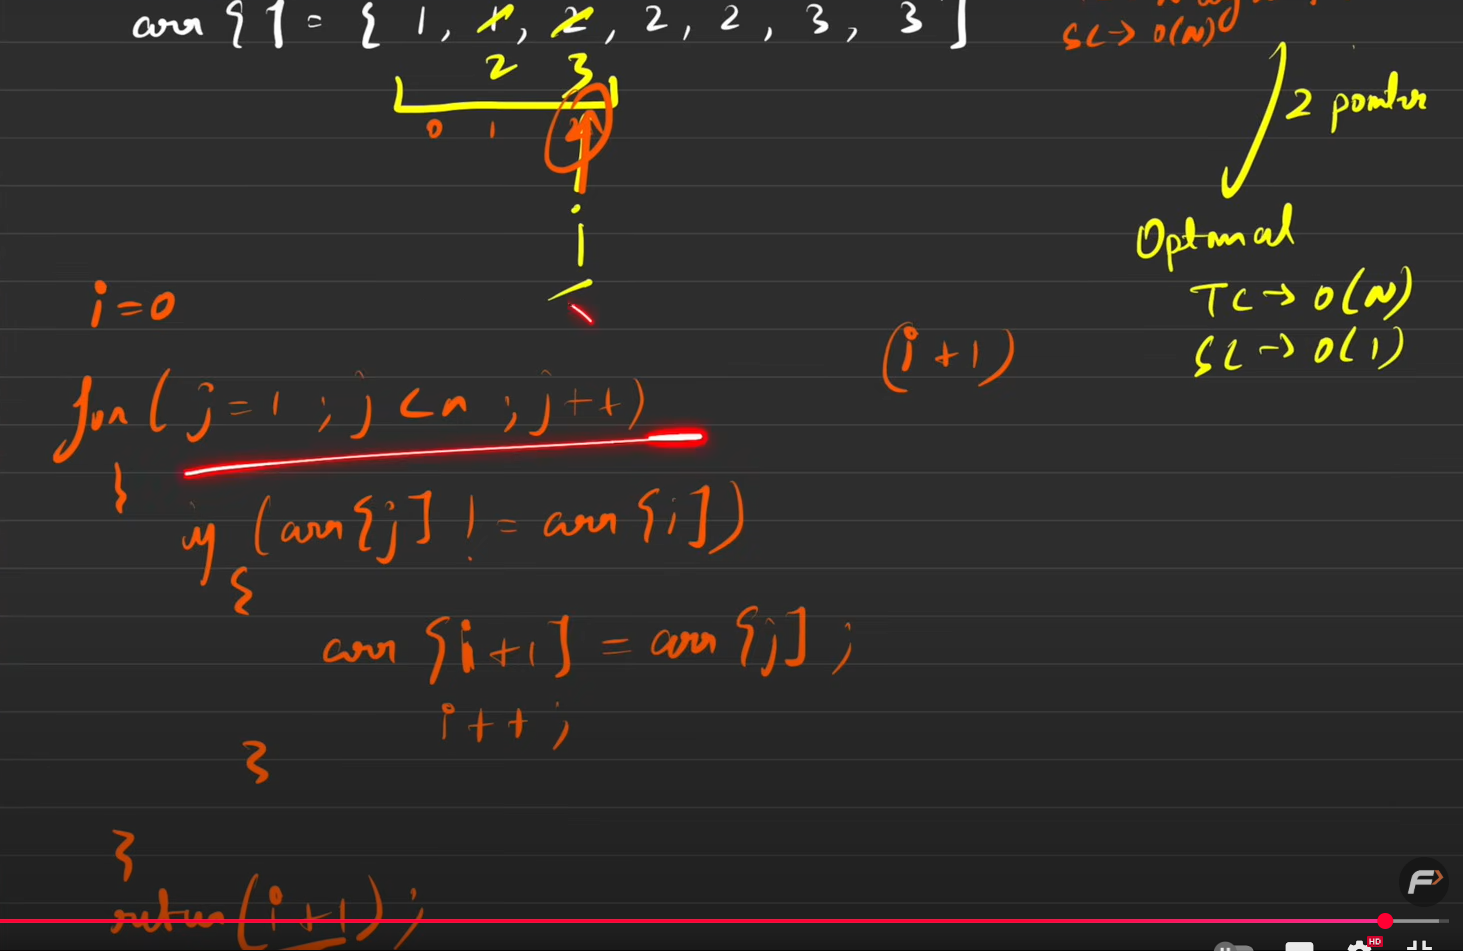 arr [] = { 1, 1, 2, 2, 2, 3, 3 ]
SC → O(N)
2 3
0 1 2
2 pointer
i
Optimal
TC → O(N)
SC → O(1)
i = 0
(i + 1)
for ( j = 1 ; j < n ; j++)
{
if (arr[j] != arr[i])
{
arr [i+1] = arr [j] ;
i++ ;
}
}
return (i+1) ;
HD